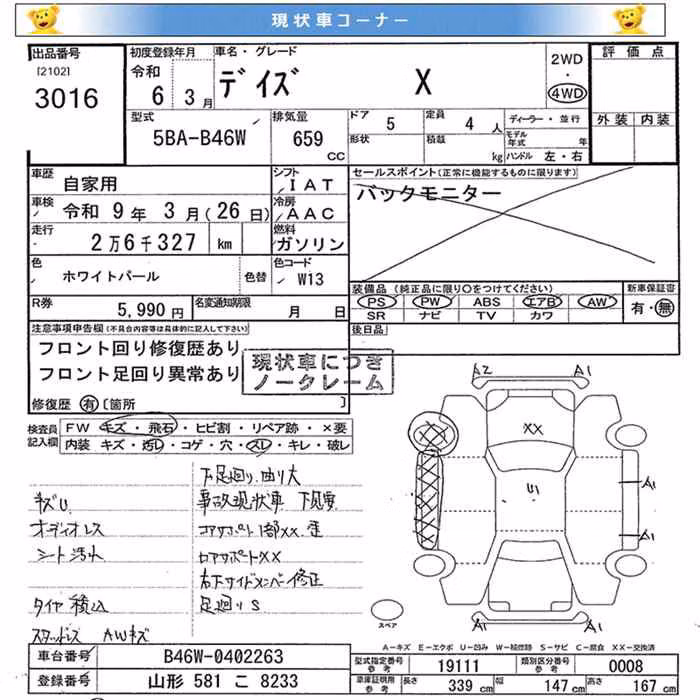 現状車コーナー
出品番号
[2102]
3016
初度登録年月
令和
6 3月
車名・グレード
デイズ X
2WD
・
4WD
評価点
外装 内装
型式
5BA-B46W
排気量
659
CC
ドア 5
形状
定員 4 人
積載
kg
ディーラー・並行
モデル年式 年
ハンドル 左・右
車歴
自家用
シフト
IAT
車検
令和 9年 3月(26日)
冷房
AAC
走行
2万6千327 km
燃料
ガソリン
色
ホワイトパール
色替
色コード
W13
R券
5,990円
名変通知期限
月 日
セールスポイント(正常に機能するものに限ります)
バックモニター
装備品(純正品に限り○をつけてください)
PS PW ABS エアB AW
SR ナビ TV カワ
新車保証書
有・無
後日品
注意事項申告欄(不具合内容等は具体的に記入して下さい)
フロント回り修復歴あり
フロント足回り異常あり
修復歴 有 〔箇所 〕
現状車につき
ノークレーム
検査員
記入欄
FW キズ・飛石・ヒビ割・リペア跡・×要
内装 キズ・汚レ・コゲ・穴・スレ・キレ・破レ
下足廻り.曲り大
キズU
事故現状車
オーディオレス
コアサポート1部XX.歪
シート汚れ
ロアサポートXX
右下サイドメンバー修正
タイヤ積込
足廻りS
スタッドレス AWキズ
A2 A1
XX
U1
A1
A1
A1
スペア
A-キズ E-エクボ U-凹み W-補修跡 S-サビ C-腐食 XX-交換済
車台番号
B46W-0402263
登録番号
山形 581 こ 8233
型式指定番号
参考
19111
類別区分番号
参考
0008
車庫証明用
参考
長さ 339 cm 幅 147 cm 高さ 167 cm